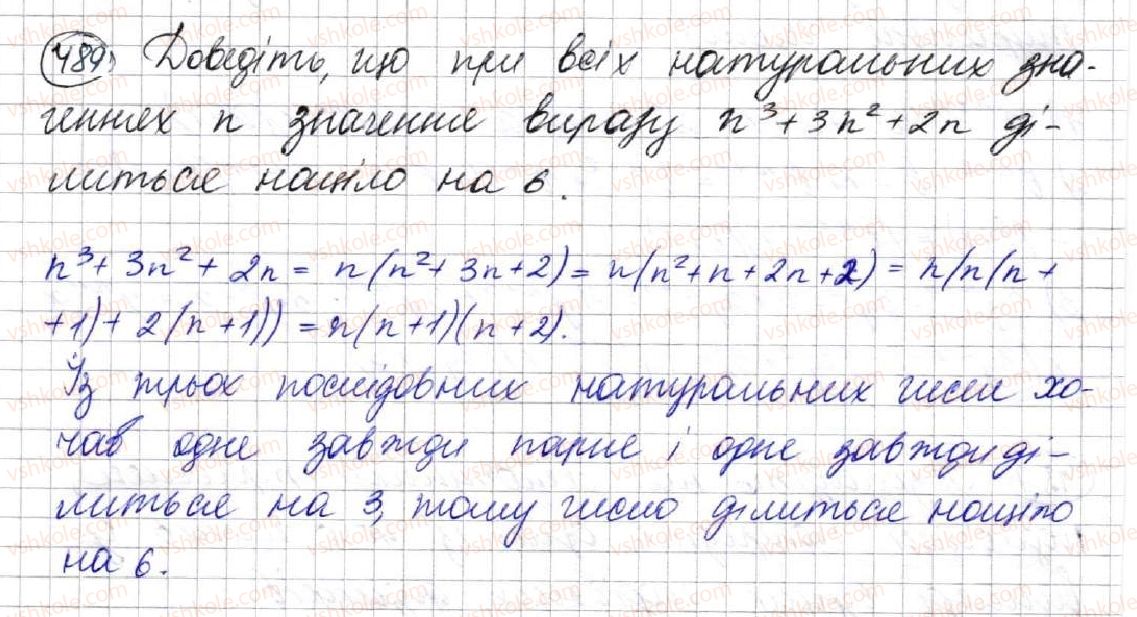 489. Доведіть, що при всіх натуральних зна-
ченнях n значення виразу n³ + 3n² + 2n ді-
литься націло на 6.
n³ + 3n² + 2n = n(n² + 3n + 2) = n(n² + n + 2n + 2) = n(n(n +
+ 1) + 2(n + 1)) = n(n + 1)(n + 2).
Із трьох послідовних натуральних чисел хо-
чаб одне завжди парне і одне завжди ді-
литься на 3, тому число ділиться націло
на 6.